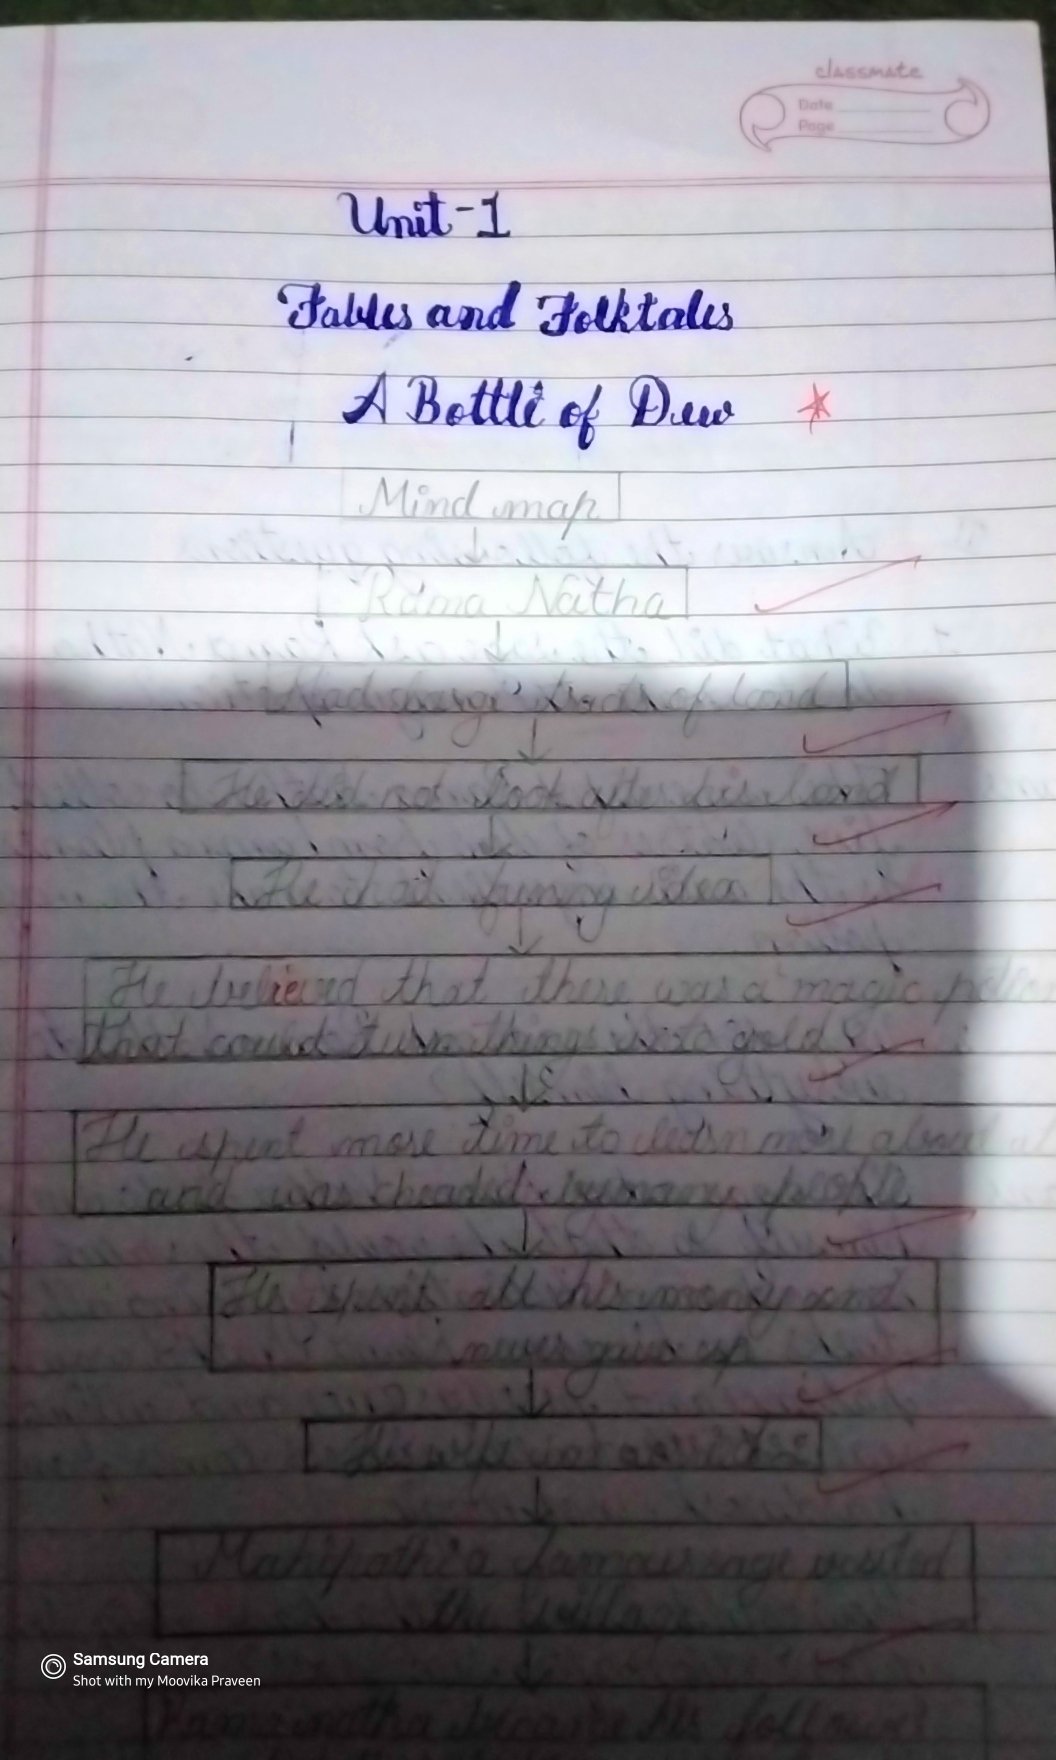 classmate
Date
Page
Unit-1
Fables and Folktales
A Bottle of Dew
Mind map
Rama Natha
Had large tracts of land
He did not look after his land
He had funing idea
He believed that there was a magic potion
that could turn things into gold
He spent more time to learn more about
and was cheaded many people
He spent all his money and
never give up
His wife
Mahipathi a famous sage visited
the village
Ramanatha became his follower
Samsung Camera
Shot with my Moovika Praveen